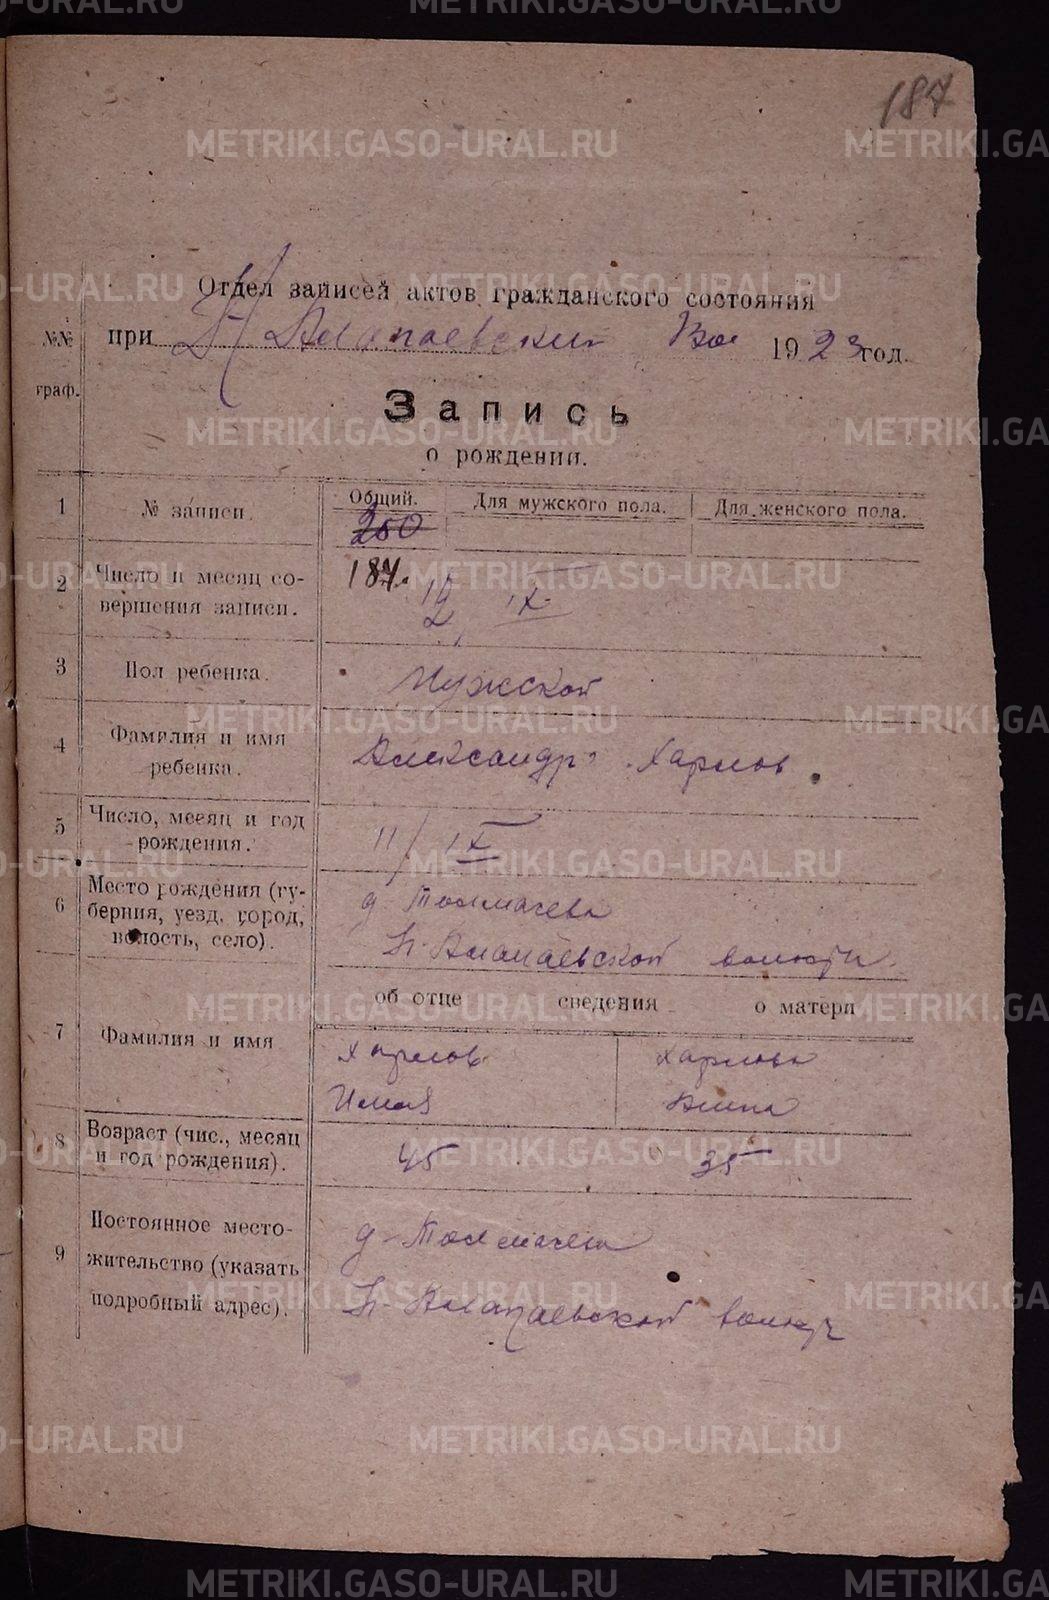 187
Отдел записей актов гражданского состояния
при Н Алапаевским Вол 1923 год.
№№ граф.
Запись
о рождении.
1 № записи. Общий. Для мужского пола. Для женского пола.
260
2 Число и месяц со- 187.
вершения записи. 12 IX
3 Пол ребенка. Мужской
4 Фамилия и имя
ребенка. Александр Харлов
5 Число, месяц и год
рождения. 11/IX
6 Место рождения (гу- д. Толмачева
берния, уезд, город,
волость, село). Н-Алапаевской волости
об отце сведения о матери
7 Фамилия и имя Харлов Харлова
Анна
8 Возраст (чис., месяц
и год рождения). 45 35
9 Постоянное место-
жительство (указать д. Толмачева
подробный адрес). Н-Алапаевской волости
METRIKI.GASO-URAL.RU